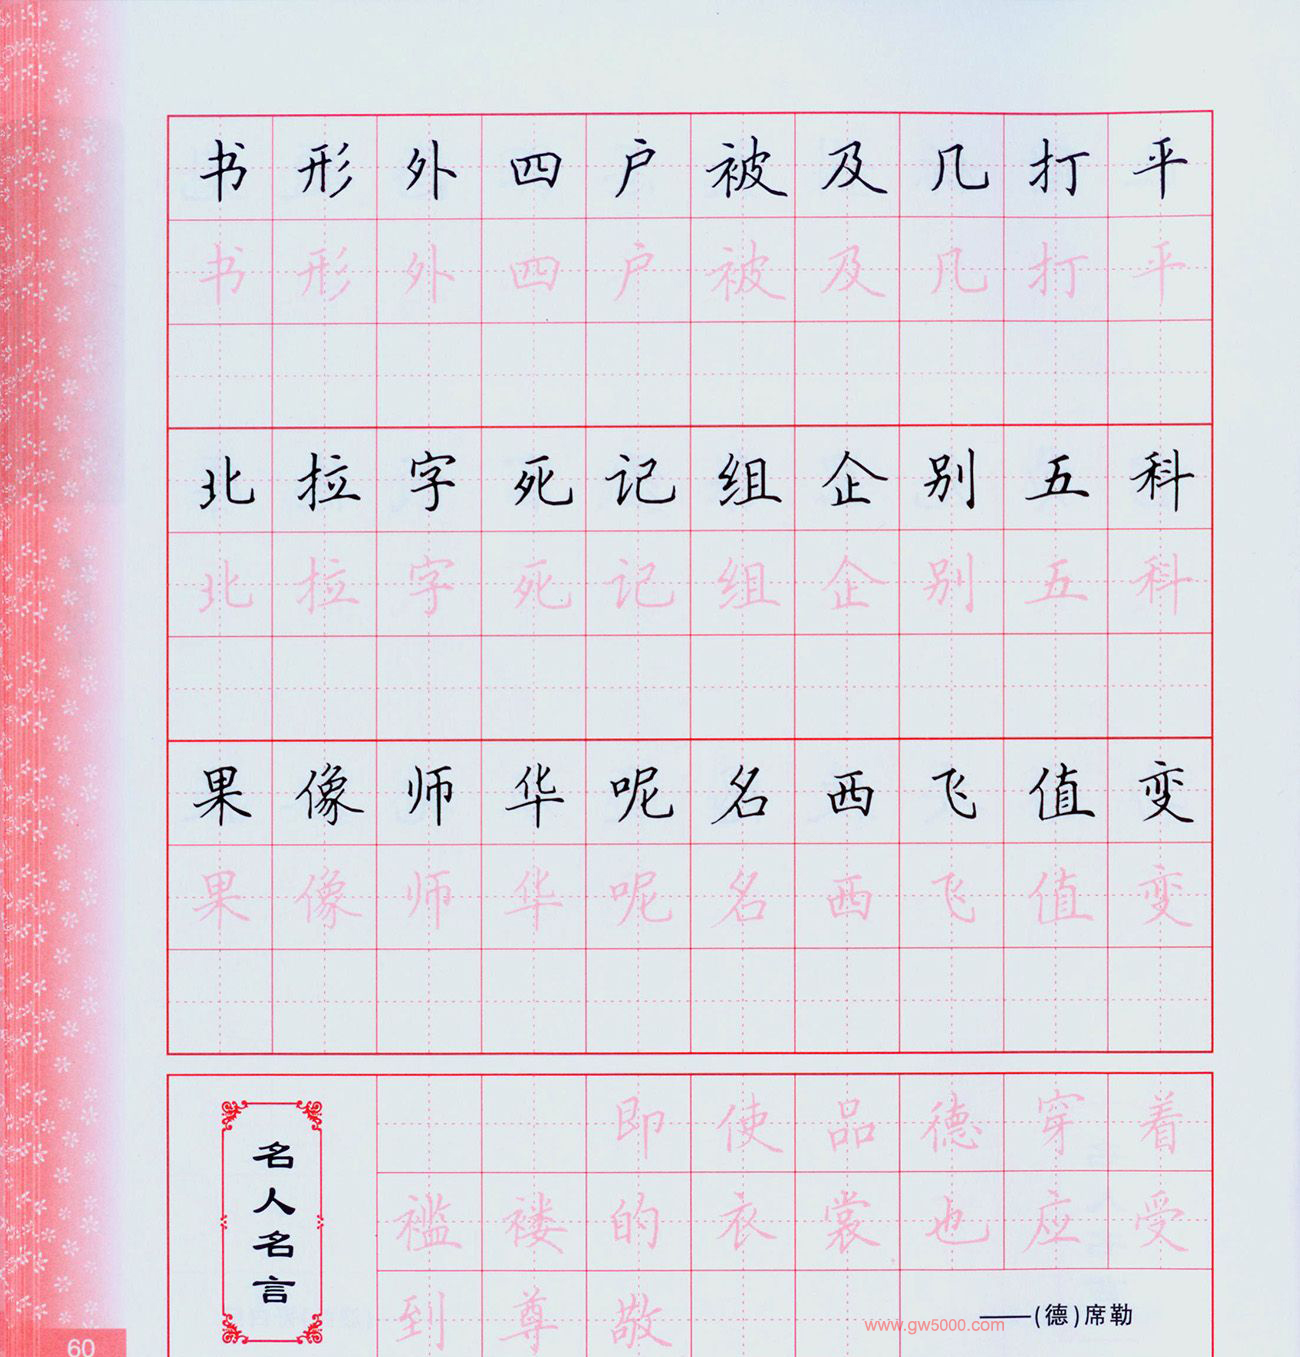 书形外四户被及几打平
书形外四户被及几打平
北拉字死记组企别五科
北拉字死记组企别五科
果像师华呢名西飞值变
果像师华呢名西飞值变
名人名言
即使品德穿着
褴褛的衣裳也应受
到尊敬
——(德)席勒
www.gw5000.com
60